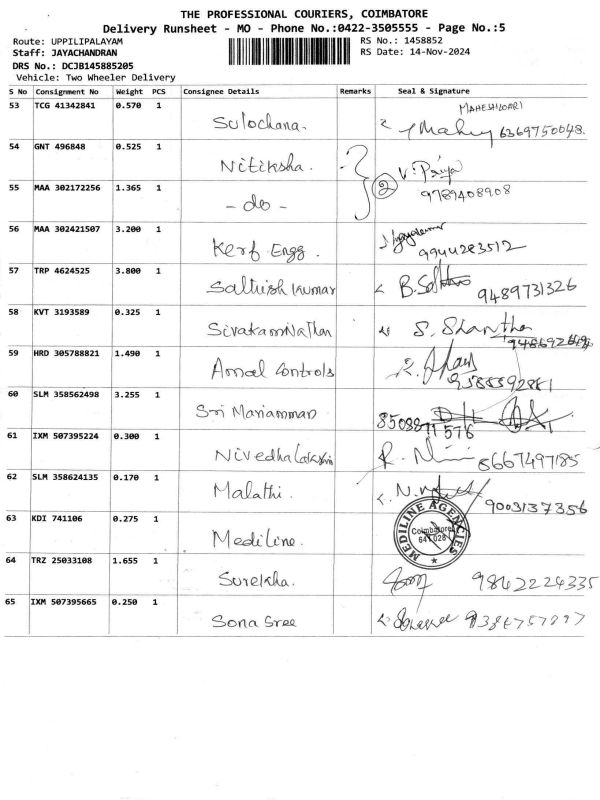 THE PROFESSIONAL COURIERS, COIMBATORE
Delivery Runsheet - MO - Phone No.:0422-3505555 - Page No.:5
Route: UPPILIPALAYAM RS No.: 1458852
Staff: JAYACHANDRAN RS Date: 14-Nov-2024
DRS No.: DCJB145885205
Vehicle: Two Wheeler Delivery
S No Consignment No Weight PCS Consignee Details Remarks Seal & Signature
53 TCG 41342841 0.570 1 Sulochana. MAHESHWARI 6369750048.
54 GNT 496848 0.525 1 Nitiksha. V. Priya
55 MAA 302172256 1.365 1 - do - 2 9789408908
56 MAA 302421507 3.200 1 Kerf Engg. 9944283512
57 TRP 4624525 3.800 1 Sathish Kumar 9489731326
58 KVT 3193589 0.325 1 Sivakami Nathan S. Shantha
59 HRD 305788821 1.490 1 Amal Controls
60 SLM 358562498 3.255 1 Sri Mariamman 8508871576
61 IXM 507395224 0.300 1 Nivedha Lakshmi 8667497185
62 SLM 358624135 0.170 1 Malathi. 9003137356
63 KDI 741106 0.275 1 Mediline. MEDILINE AGENCIES Coimbatore 641 028
64 TRZ 25033108 1.655 1 Surekha. 9842224335
65 IXM 507395665 0.250 1 Sona Sree